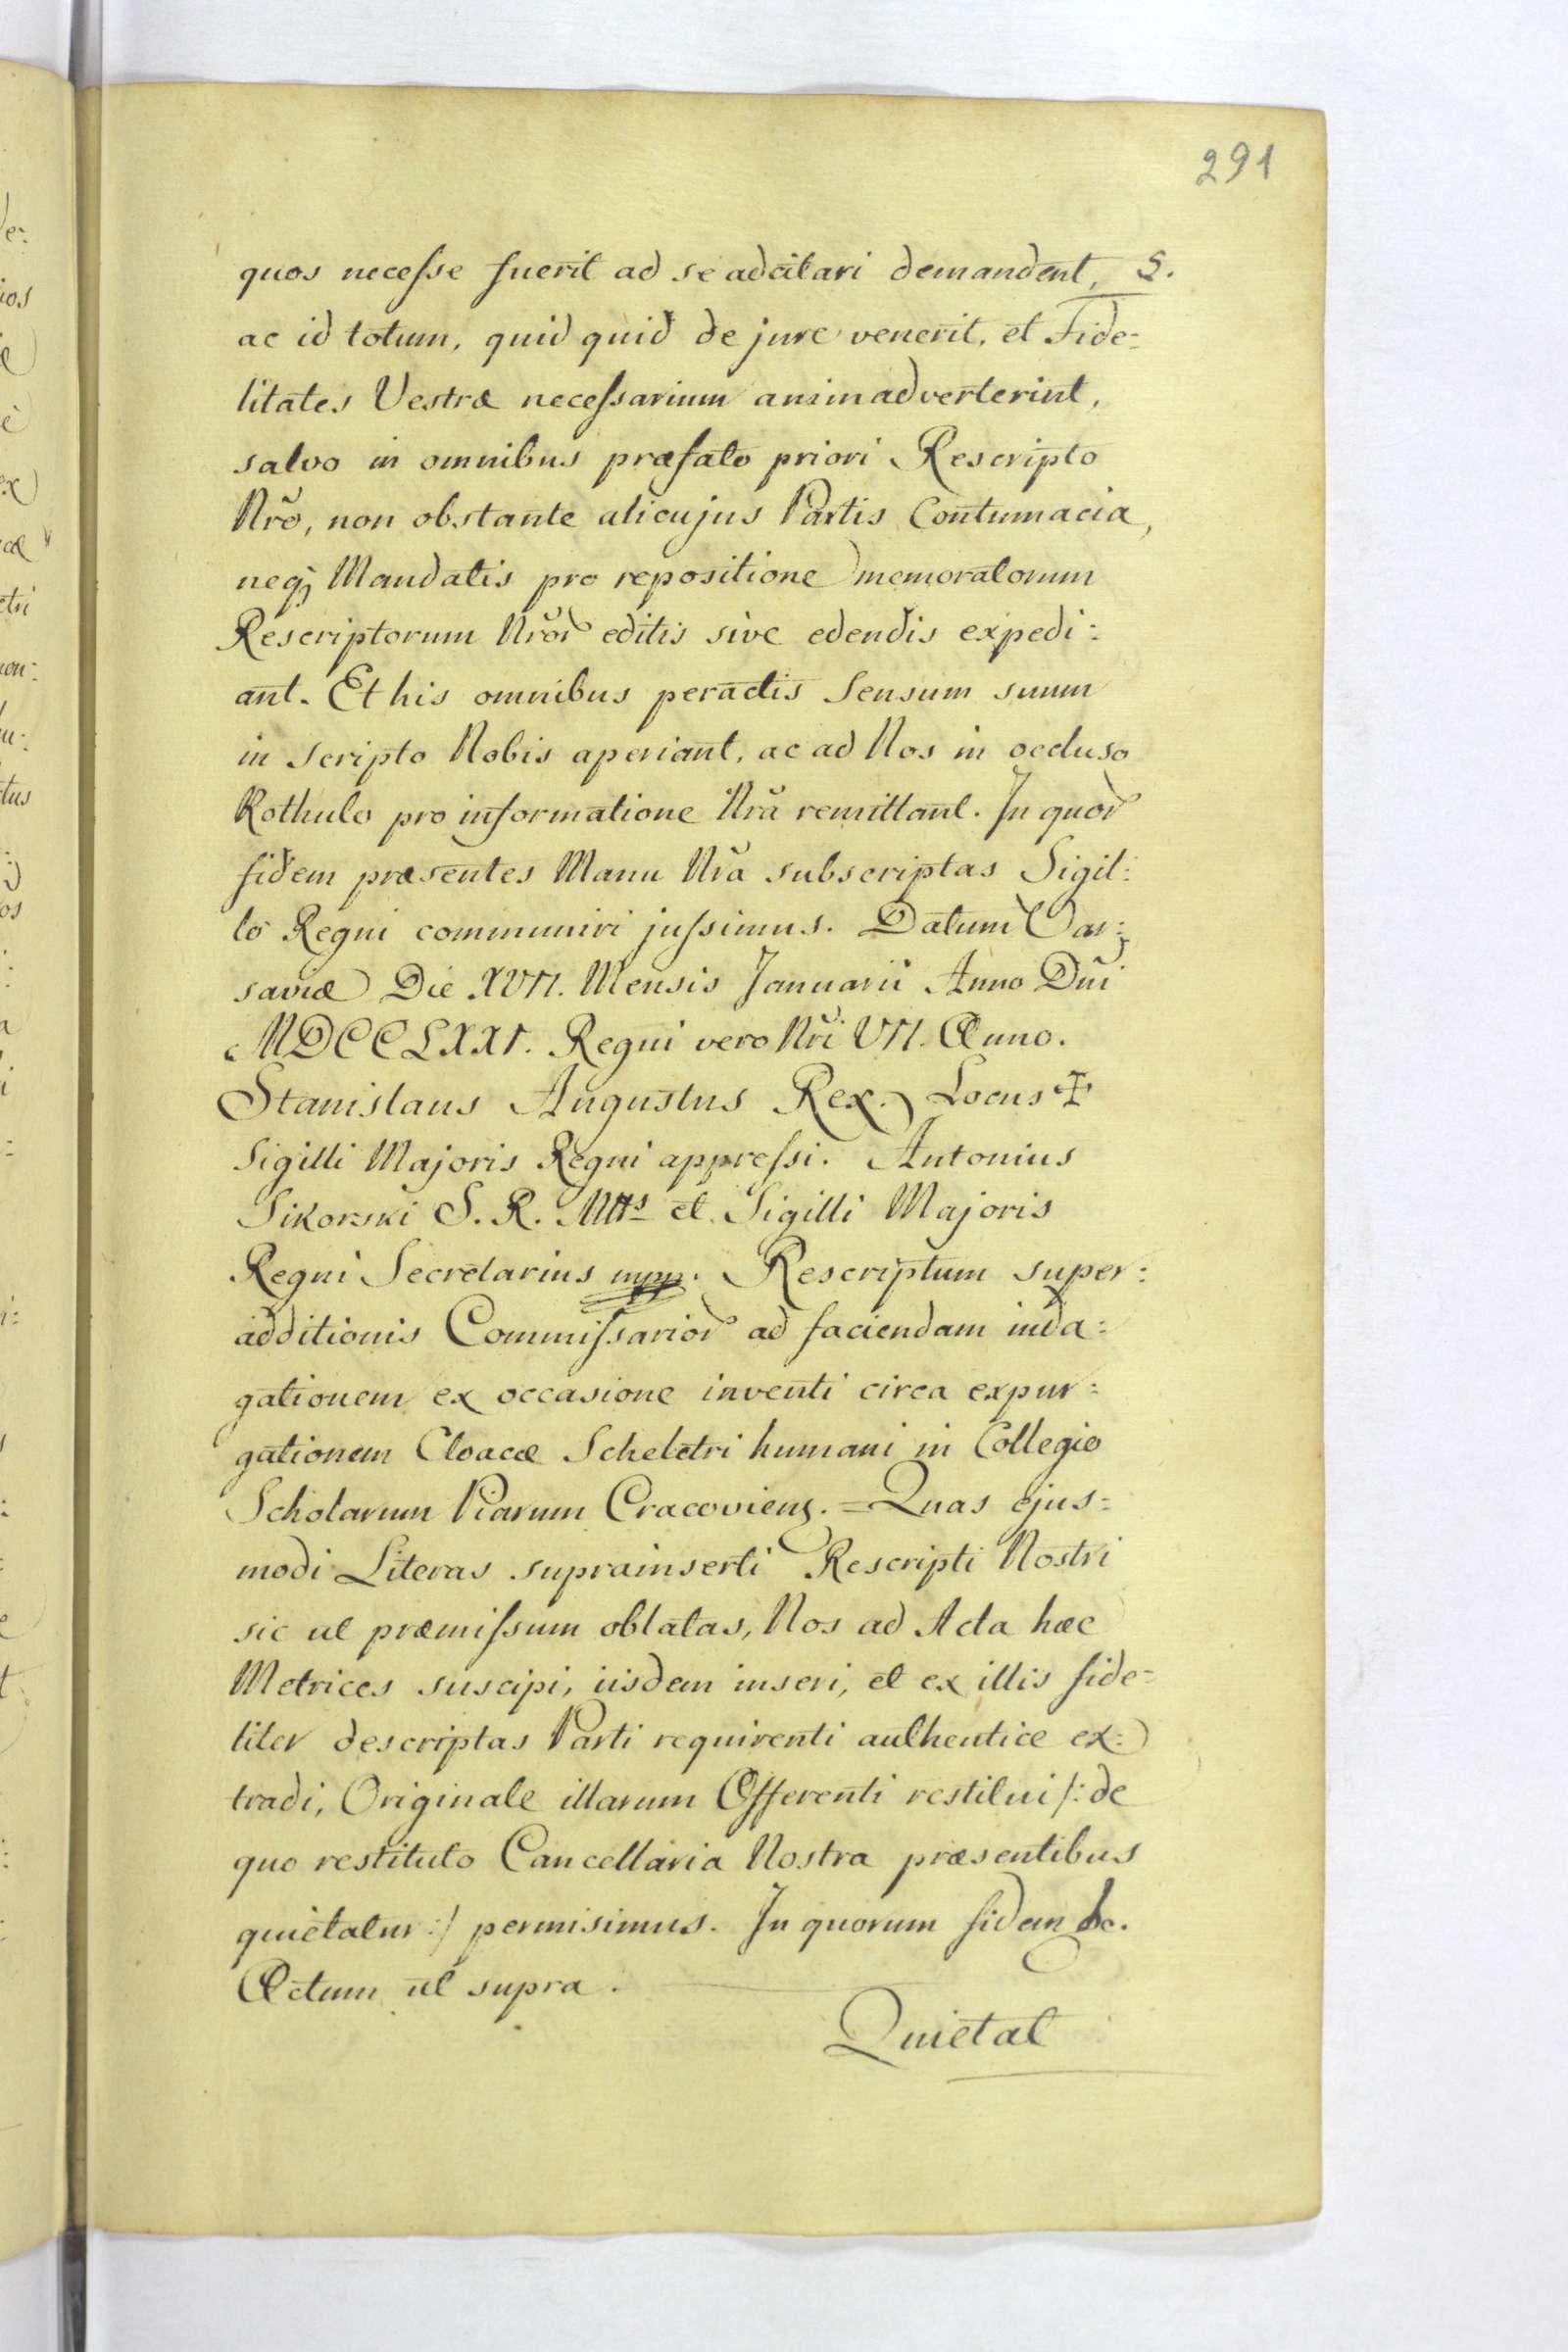 291
quos necesse fuerit ad se adcitari demandent, S.
ac id totum, quid quid de jure venerit, et Fide=
litates Vestræ necessarium animadverterint,
salvo in omnibus præfato priori Rescripto
Nrõ, non obstante alicujus Partis Contumacia,
neq; Mandatis pro repositione memoratorum
Rescriptorum Nror editis sive edendis expedi=
ant. Et his omnibus peractis Sensum suum
in Scripto Nobis aperiant, ac ad Nos in occluso
Rothulo pro informatione Nrã remittant. In quor
fidem præsentes Manu Nrã subscriptas Sigil=
lo Regni communiri jussimus. Datum Var=
saviæ Die XVII. Mensis Januarii Anno Dñi
MDCCLXXI. Regni vero Nrĩ VII. Anno.
Stanislaus Augustus Rex. Locus ✠
Sigilli Majoris Regni appressi. Antonius
Sikorski S. R. Mtts et Sigilli Majoris
Regni Secretarius mpp. Rescriptum super=
additionis Commissarior ad faciendam inda=
gationem ex occasione inventi circa expur=
gationem Cloacæ Scheletri humani in Collegio
Scholarum Piarum Cracoviens. = Quas ejus=
modi Literas suprainserti Rescripti Nostri
sic ut præmissum oblatas, Nos ad Acta hæc
Metrices suscipi, iisdem inseri, et ex illis fide=
liter descriptas Parti requirenti authentice ex=
tradi, Originale illarum Offerenti restitui /: de
quo restituto Cancellaria Nostra præsentibus
quietatur :/ permisimus. In quorum fidem &c.
Actum ut supra.
Quietat